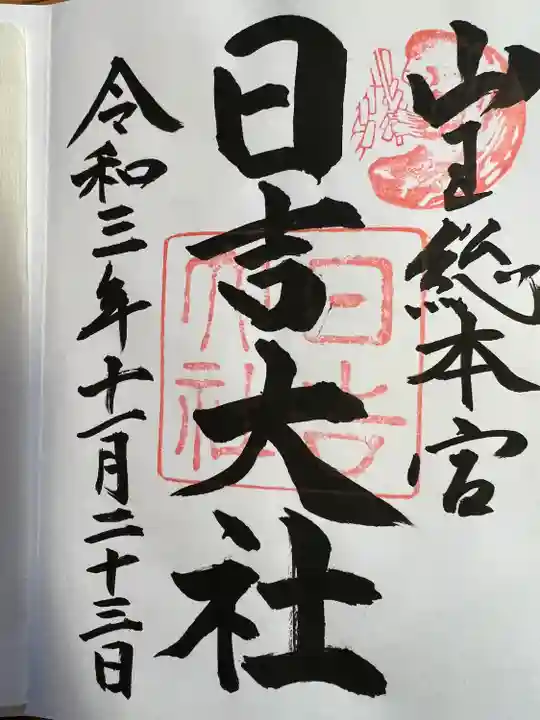 山王総本宮
日吉大社
日吉
大社
令和三年十一月二十三日